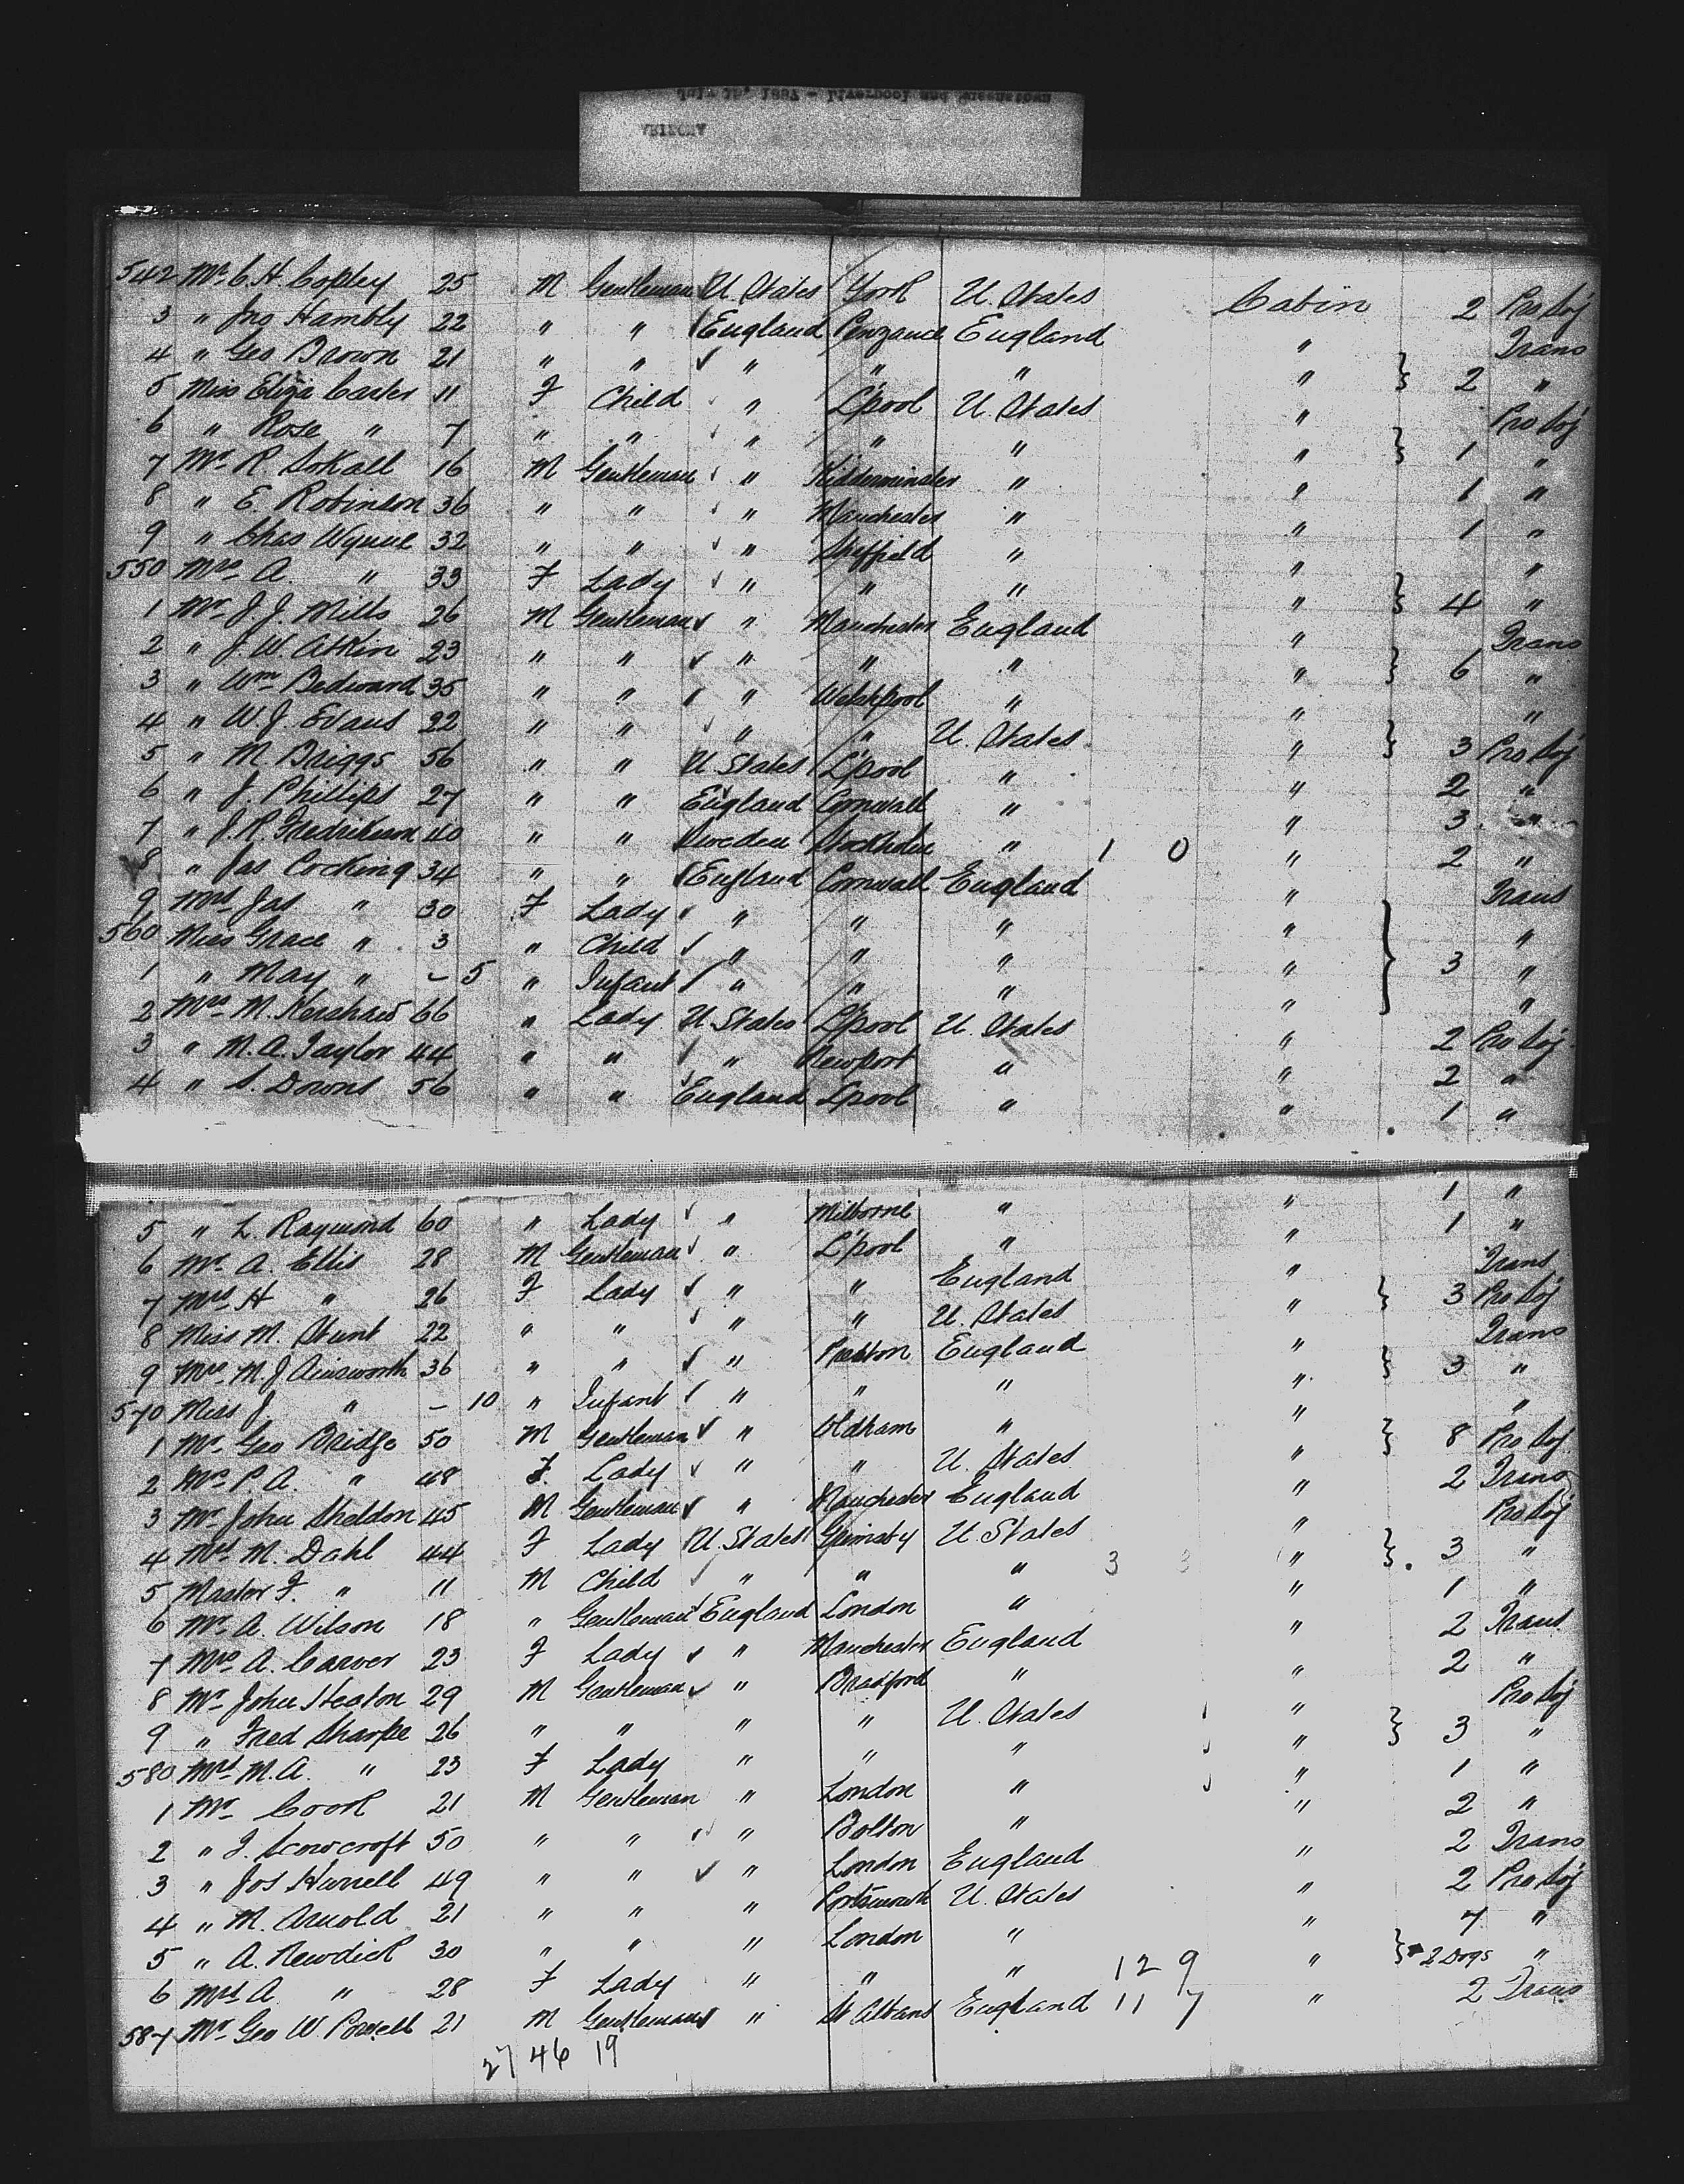 July 15, 1887 - Liverpool and Queenstown
542 Mr. C. H. Copley 25 M Gentleman U. States York U. States Cabin 2 Pro Soj
3 " Jno Hambly 22 " " England Penzance England " Trans
4 " Geo Brown 21 " " " " " " } 2 "
5 Miss Eliza Carter 11 F Child " L'pool U. States " Pro Soj
6 " Rose " 7 " " " " " " } 1 "
7 Mr. R 16 M Gentleman " Kidderminster " " 1 "
8 " E. Robinson 36 " " " Manchester " " 1 "
9 " Chas Wynne 32 " " " Sheffield " " "
550 Mrs. A. " 33 F Lady " " " " } 4 "
1 Mr. J. J. Mills 26 M Gentleman " Manchester England " Trans
2 " J. W. Atkin 23 " " " " " " } 6 "
3 " Wm Bedward 35 " " " Welshpool " " "
4 " W. J. Evans 22 " " " " U. States " } 3 Pro Soj
5 " M Briggs 56 " " U. States L'pool " " 2 "
6 " J. Phillips 27 " " England Cornwall " " 3 "
7 " J. R. Fredrikson 40 " " Sweden Stockholm " 1 0 " 2 "
8 " Jas Cocking 34 " " England Cornwall England " Trans
9 Mrs Jas " 30 F Lady " " " " "
560 Miss Grace " 3 " Child " " " " } 3 "
1 " May " - 5 " Infant " " " " "
2 Mrs M. Kershaw 66 " Lady U. States L'pool U. States " 2 Pro Soj
3 " M. A. Taylor 44 " " " Newport " " 2 "
4 " S. Downs 56 " " England L'pool " " 1 "
5 " L. Raymond 60 " Lady " Milborne " " 1 "
6 Mr. A. Ellis 28 M Gentleman " L'pool " " 1 "
7 Mrs H " 26 F Lady " " England " Trans
8 Miss M. Stunt 22 " " " " U. States " } 3 Pro Soj
9 Mrs. M. J Ainsworth 36 " " " Preston England " Trans
570 Miss J. " - 10 " Infant " " " " } 3 "
1 Mr. Geo Bridge 50 M Gentleman " Oldham " " "
2 Mrs P. A. " 48 F Lady " " U. States " } 8 Pro Soj
3 Mr. John Sheldon 45 M Gentleman " Manchester England " 2 Trans
4 Mrs M. Dahl 44 F Lady U. States Grimsby U. States " Pro Soj
5 Master F. " 11 M Child " " " 3 3 " } 3 "
6 Mr. A. Wilson 18 " Gentleman England London " " 1 "
7 Mrs. A. Carver 23 F Lady " Manchester England " 2 Trans
8 Mr. John Heaton 29 M Gentleman " Bradford " " 2 "
9 " Fred Sharpe 26 " " " " U. States " Pro Soj
580 Mrs M. A. " 23 F Lady " " " " } 3 "
1 Mr. Cook 21 M Gentleman " London " " 1 "
2 " J. Scowcroft 50 " " " Bolton " " 2 "
3 " Jos 49 " " " London England " 2 Trans
4 " M. Arnold 21 " " " Portsmouth U. States " 2 Pro Soj
5 " A. Newdick 30 " " " London " " 7 "
6 Mrs A. " 28 F Lady " " " 12 9 " } 2 Dogs "
587 Mr. Geo W. 21 M Gentleman " St Albans England 11 7 " 2 Trans
27 46 19